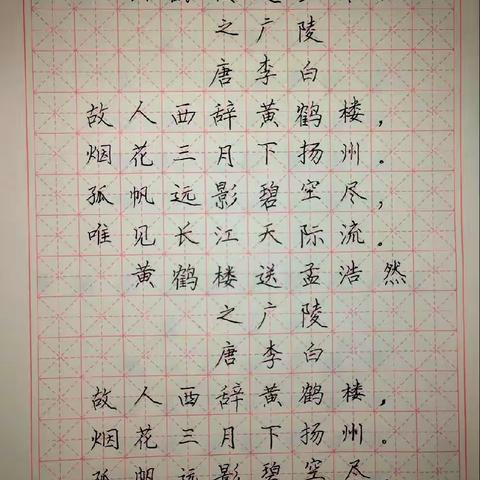 之广陵
唐李白
故人西辞黄鹤楼，
烟花三月下扬州。
孤帆远影碧空尽，
唯见长江天际流。
黄鹤楼送孟浩然
之广陵
唐李白
故人西辞黄鹤楼，
烟花三月下扬州。
孤帆远影碧空尽，